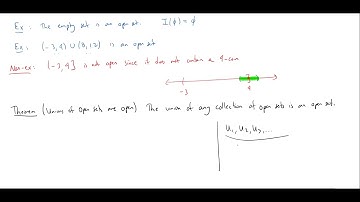 Ex: The empty set is an open set. I(∅) = ∅
Ex: (-3,4) ∪ (8,12) is an open set
Non-ex: (-3,4] is not open since it does not contain a 4-con
-3 4
Theorem (Unions of open sets are open) The union of any collection of open sets is an open set.
U₁, U₂, U₃, ...